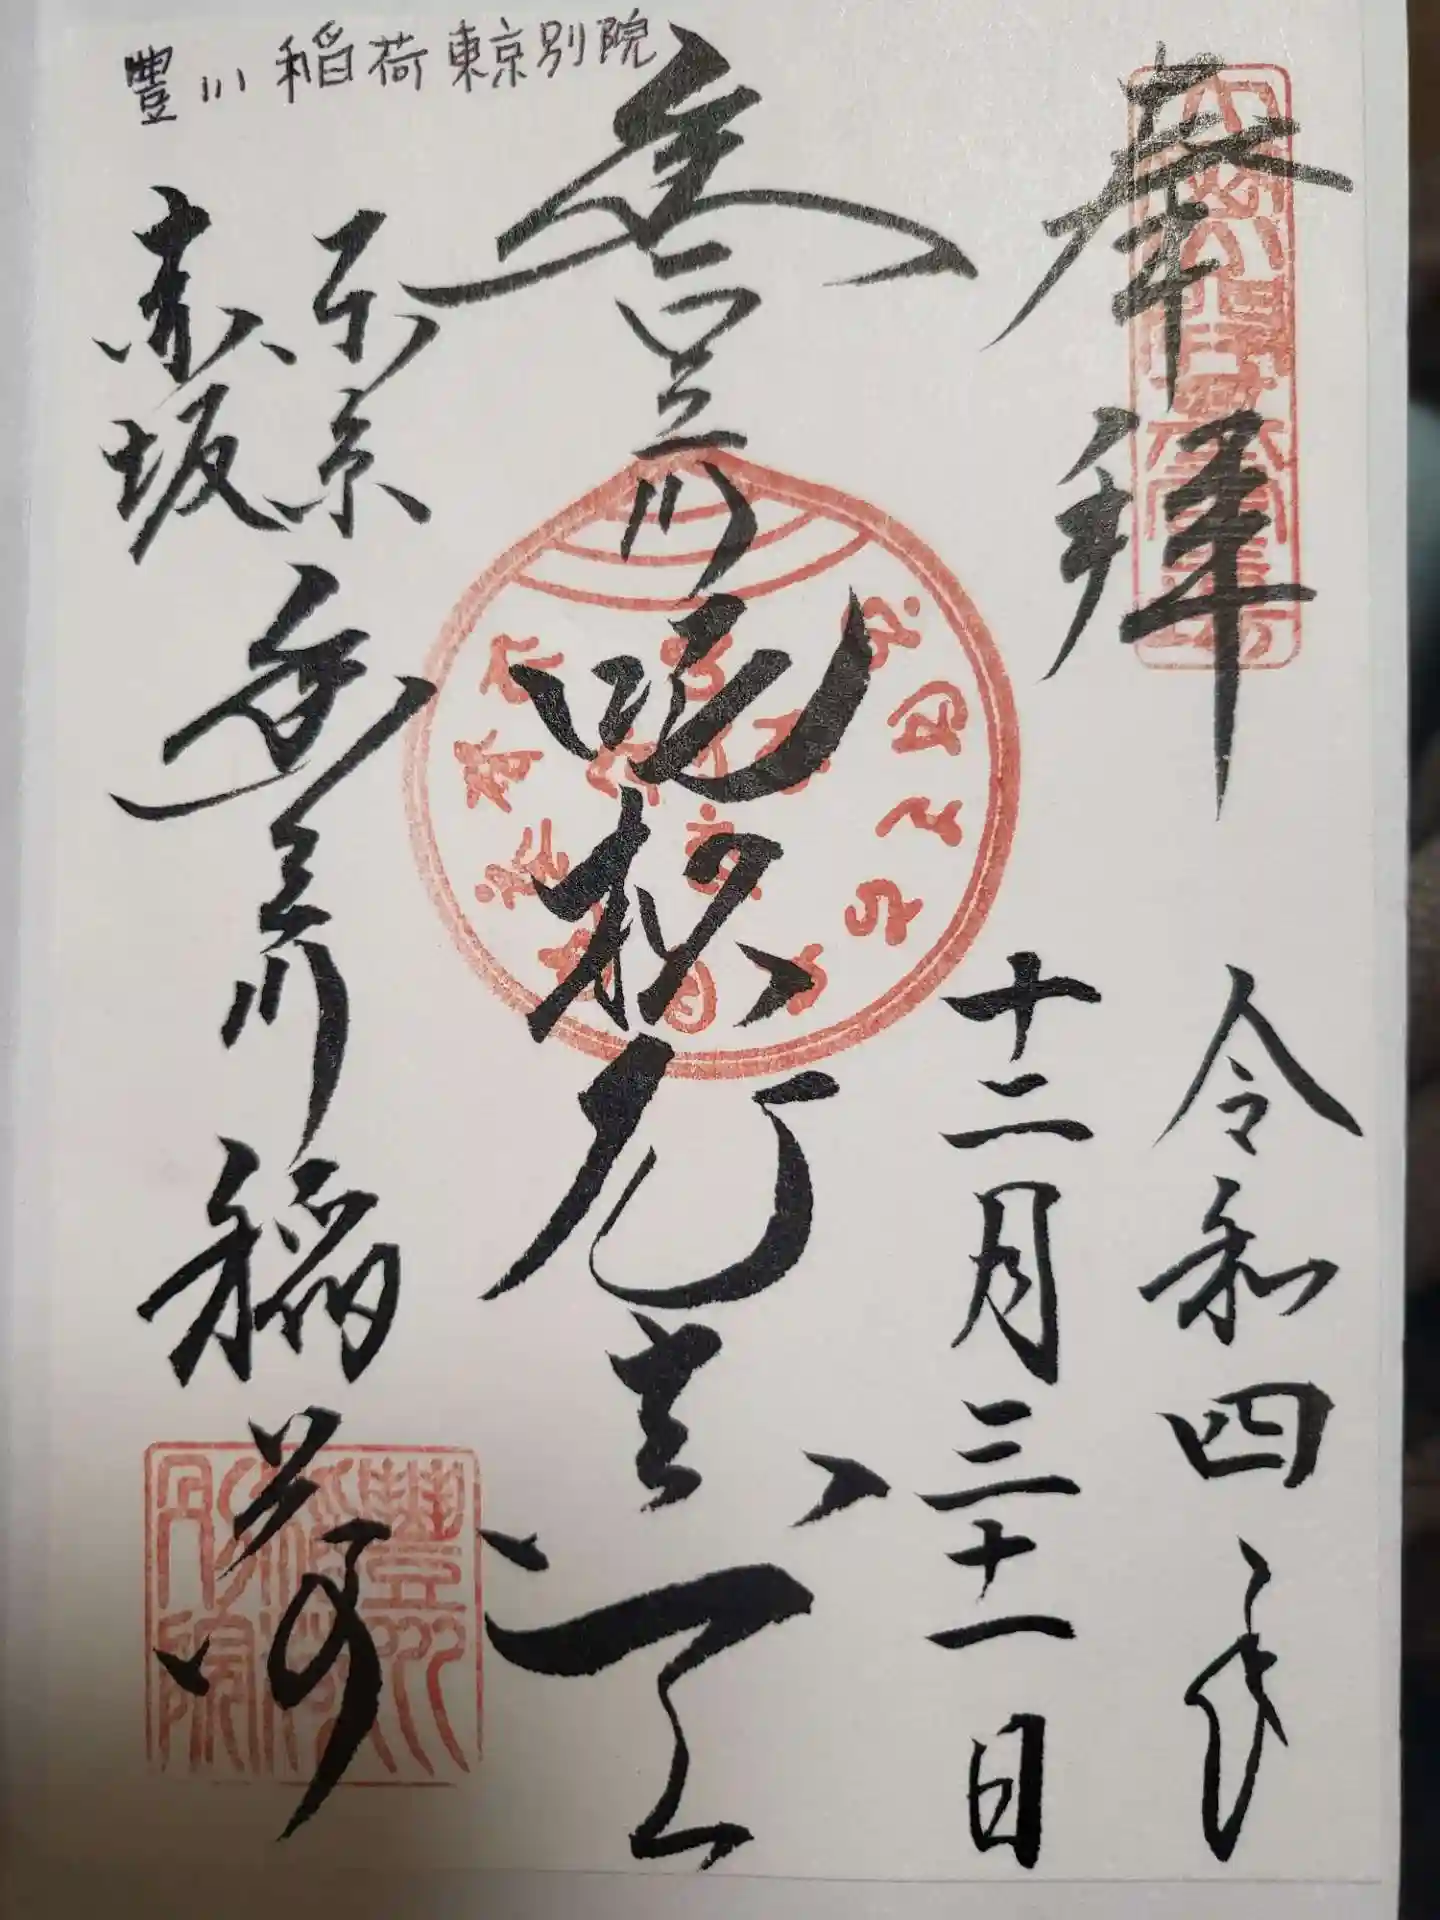 豊川稲荷東京別院
奉拝
令和四年
十二月三十一日
豊川吒枳尼真天
東京
赤坂
豊川稲荷
豊川
稲荷
別院